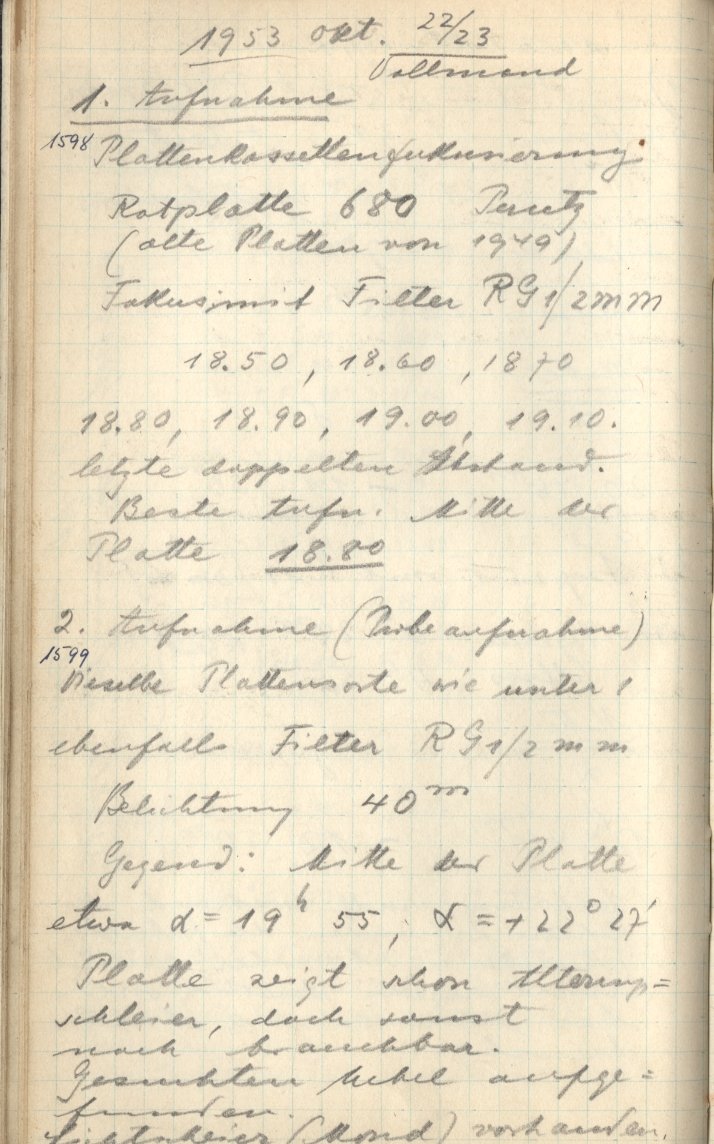 1953 Okt. 22/23
Vollmond
1. Aufnahme
1598 Plattenkassettenfokusierung.
Rotplatte 680 Perutz
(alte Platten von 1949)
Fokus mit Filter RG1/2mm
18.50, 18.60, 1870
18.80, 18.90, 19.00, 19.10.
letzte doppelten Abstand.
Beste Aufn. Mitte der
Platte 18.80
2. Aufnahme (Probeaufnahme)
1599
Dieselbe Plattensorte wie unter 1
ebenfalls Filter RG1/2mm
Belichtung 40ᵐ
Gegend: Mitte der Platte
etwa α = 19ʰ 55, α = +22° 27'
Platte zeigt schon Alterungs=
schleier, doch sonst
noch brauchbar.
Gesuchten Nebel aufge=
funden.
Lichtschleier (Mond) vorhanden.